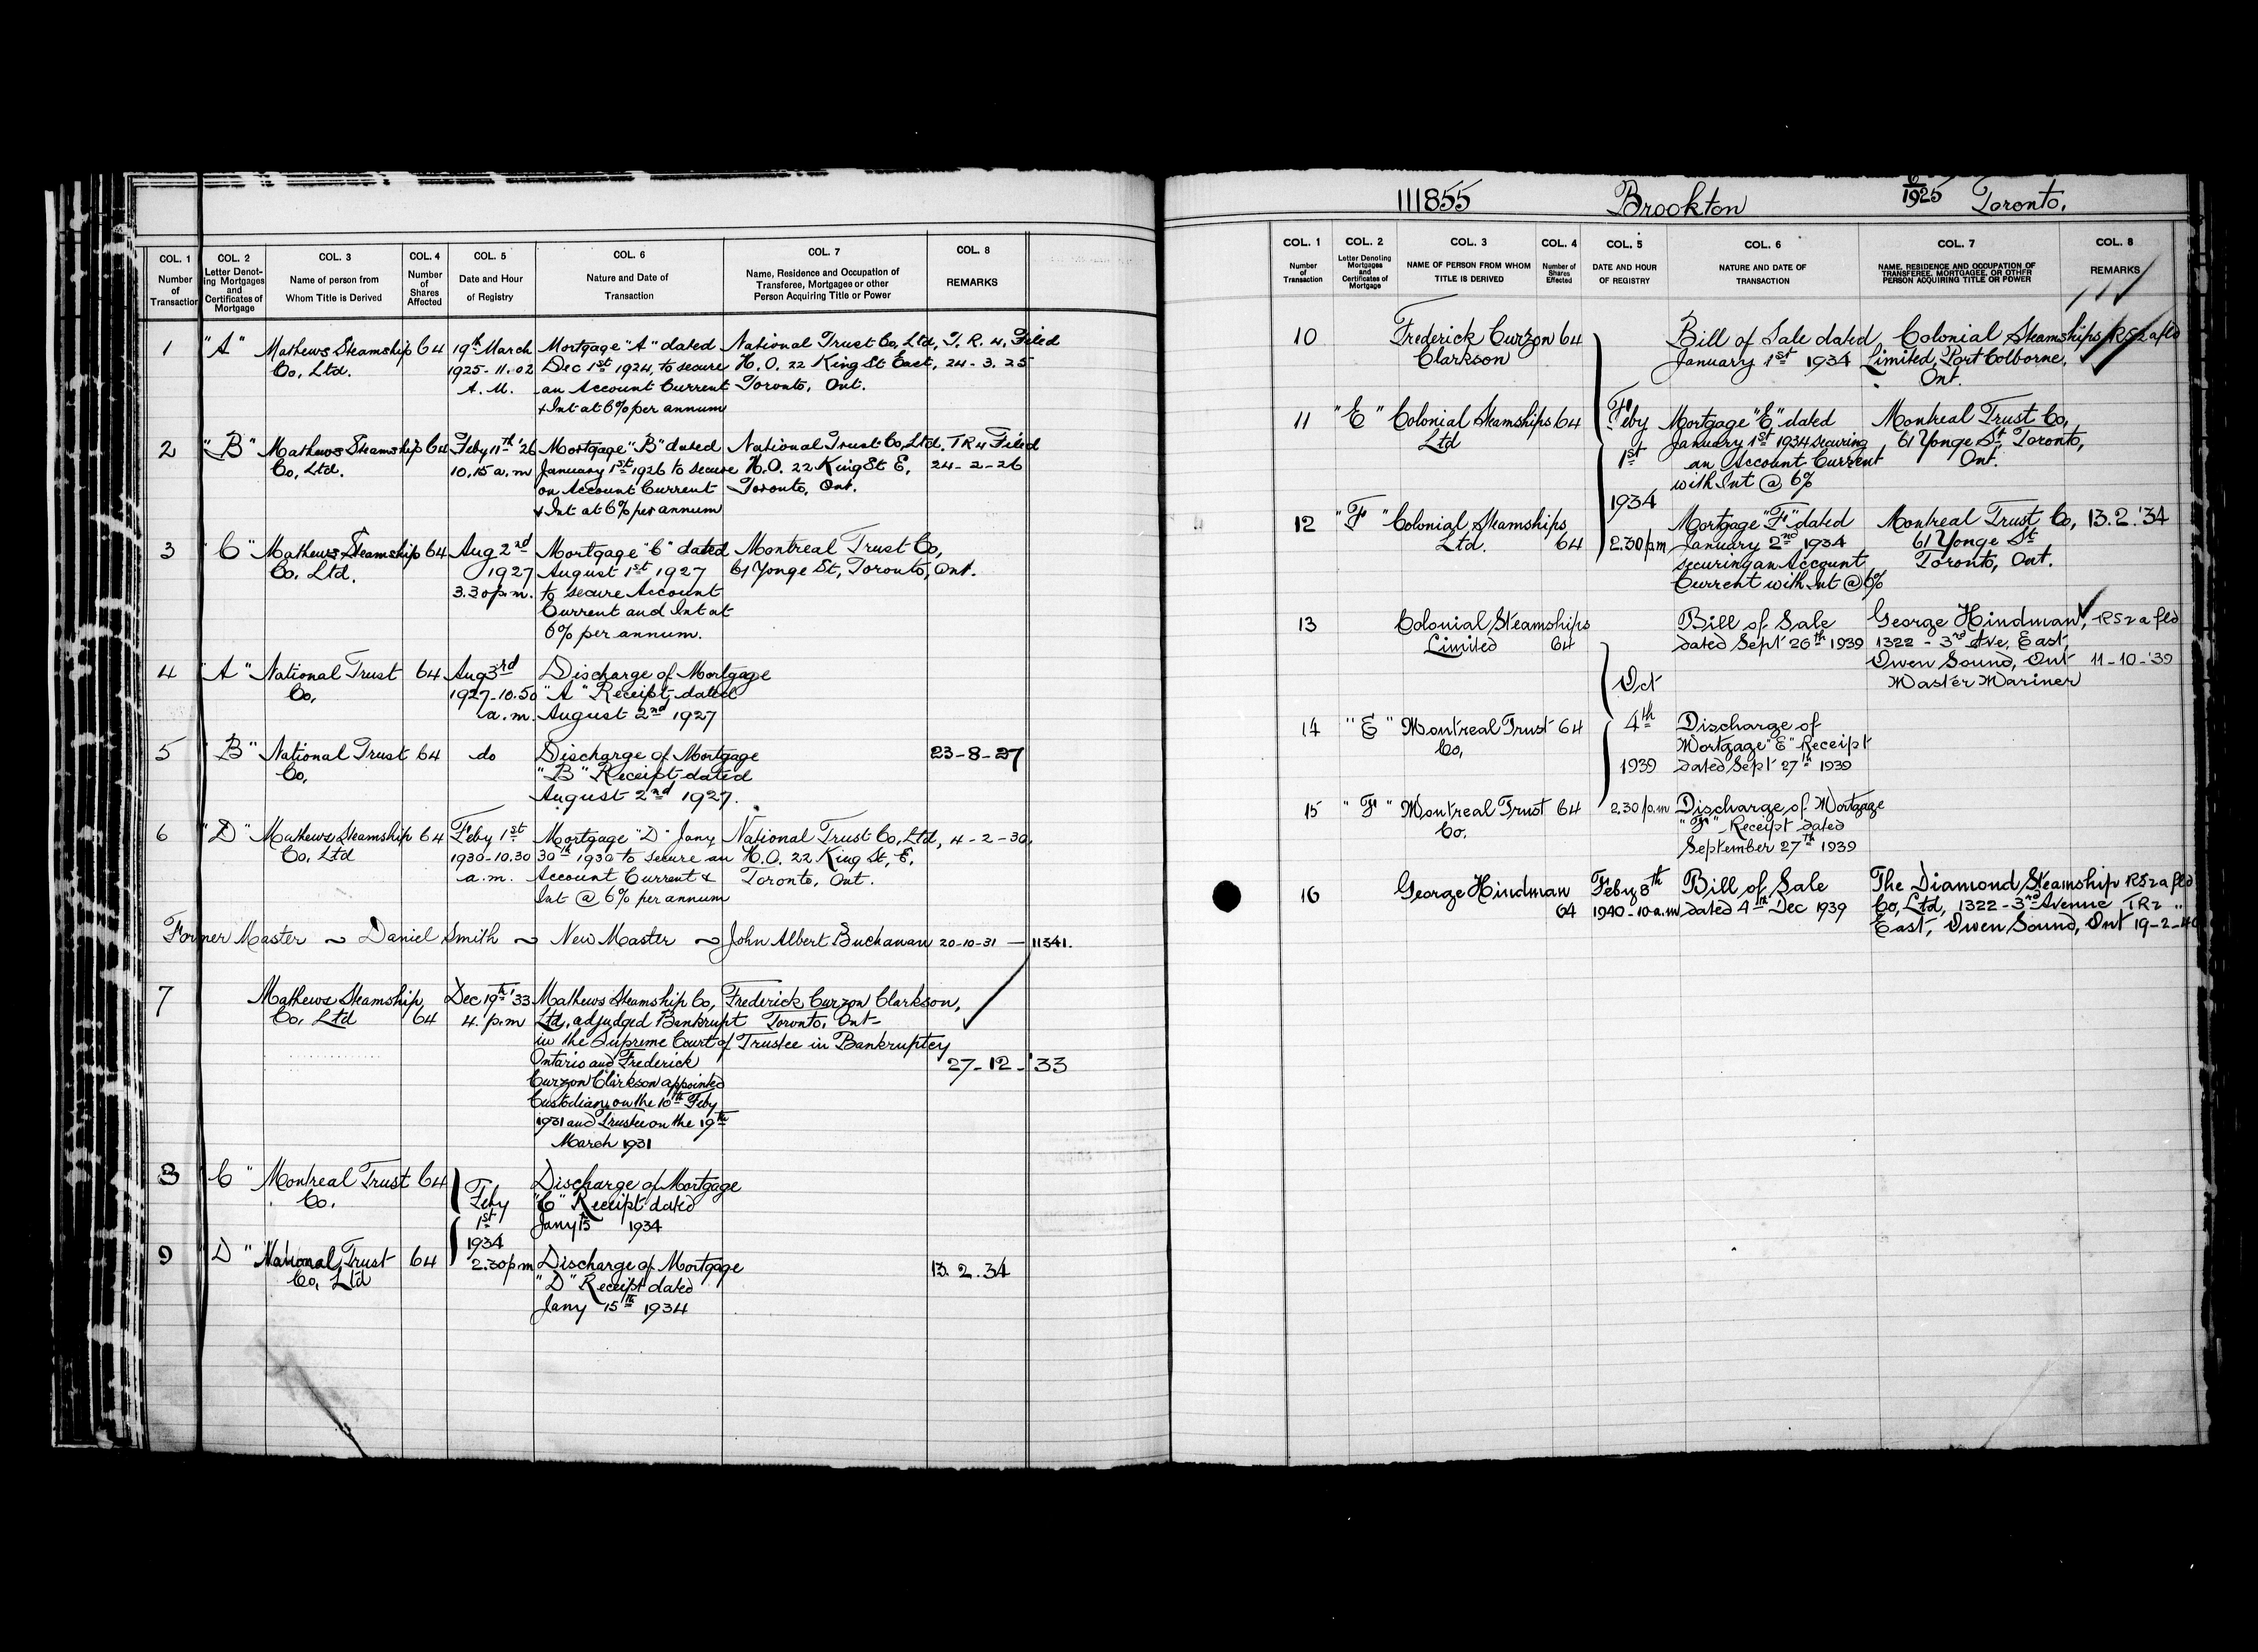 COL. 1
Number
of
Transaction
COL. 2
Letter Denot-
ing Mortgages
and
Certificates of
Mortgage
COL. 3
Name of person from
Whom Title is Derived
COL. 4
Number
of
Shares
Affected
COL. 5
Date and Hour
of Registry
COL. 6
Nature and Date of
Transaction
COL. 7
Name, Residence and Occupation of
Transferee, Mortgagee or other
Person Acquiring Title or Power
COL. 8
REMARKS
1 "A" Mathews Steamship 64 19th March Mortgage "A" dated National Trust Co, Ltd, T. R. 4, Filed
Co, Ltd. 1925 - 11.02 Dec 1st 1924, to secure H. O. 22 King St East, 24 - 3. 25
A. M. an Account Current Toronto, Ont.
& Int at 6% per annum
2 "B" Mathews Steamship 64 Feby 11th '26 Mortgage "B" dated National Trust Co, Ltd. TR4 Filed
Co, Ltd. 10.15 a.m January 1st 1926 to secure H. O. 22 King St E, 24 - 2 - 26
on Account Current Toronto, Ont.
& Int at 6% per annum
3 "C" Mathews Steamship 64 Aug 2nd Mortgage "C" dated Montreal Trust Co,
Co, Ltd. 1927 August 1st 1927 61 Yonge St, Toronto, Ont.
3.30 p.m. to secure Account
Current and Int at
6% per annum.
4 "A" National Trust 64 Aug 3rd Discharge of Mortgage
Co, 1927 - 10.50 "A" Receipt dated
a.m. August 2nd 1927
5 "B" National Trust 64 do Discharge of Mortgage 23 - 8 - 27
Co, "B" Receipt dated
August 2nd 1927.
6 "D" Mathews Steamship 64 Feby 1st Mortgage "D" Jany National Trust Co, Ltd, 4 - 2 - 30,
Co, Ltd 1930 - 10.30 30th 1930 to secure an H. O. 22 King St, E,
a.m. Account Current & Toronto, Ont.
Int @ 6% per annum
Former Master ~ Daniel Smith ~ New Master ~ John Albert Buchanan 20-10-31 — 11341.
7 Mathews Steamship Dec 19th '33 Mathews Steamship Co, Frederick Curzon Clarkson,
Co, Ltd 64 4. p.m Ltd, adjudged Bankrupt Toronto, Ont-
in the Supreme Court of Trustee in Bankruptcy
Ontario and Frederick 27 - 12 - '33
Curzon Clarkson appointed
Custodian on the 10th Feby
1931 and Trustee on the 19th
March 1931
8 "C" Montreal Trust 64 Feby Discharge of Mortgage
Co. 1st "C" Receipt dated
1934 Jany 15 1934
9 "D" National Trust 64 2.30 pm Discharge of Mortgage 13. 2. 34
Co, Ltd "D" Receipt dated
Jany 15th 1934
111855 Brookton 6/1925 Toronto.
COL. 1
Number
of
Transaction
COL. 2
Letter Denoting
Mortgages
and
Certificates of
Mortgage
COL. 3
NAME OF PERSON FROM WHOM
TITLE IS DERIVED
COL. 4
Number of
Shares
Effected
COL. 5
DATE AND HOUR
OF REGISTRY
COL. 6
NATURE AND DATE OF
TRANSACTION
COL. 7
NAME, RESIDENCE AND OCCUPATION OF
TRANSFEREE, MORTGAGEE, OR OTHER
PERSON ACQUIRING TITLE OR POWER
COL. 8
REMARKS
10 Frederick Curzon 64 Bill of Sale dated Colonial Steamships RS2 a fld
Clarkson January 1st 1934 Limited, Port Colborne,
Ont.
11 "E" Colonial Steamships 64 Feby Mortgage "E" dated Montreal Trust Co,
Ltd January 1st 1934 securing 61 Yonge St, Toronto,
1st an Account Current Ont.
with Int @ 6%
1934
12 "F" Colonial Steamships Mortgage "F" dated Montreal Trust Co, 13. 2. '34
Ltd. 64 2.30 pm January 2nd 1934 61 Yonge St
securing an Account Toronto, Ont.
Current with Int @ 6%
13 Colonial Steamships Bill of Sale George Hindman, RS2 a fld
Limited 64 dated Sept 26th 1939 1322 - 3rd Ave, East,
Owen Sound, Ont 11-10-'39
Oct Master Mariner
14 "E" Montreal Trust 64 4th Discharge of
Co, Mortgage "E" Receipt
1939 dated Sept 27th 1939
15 "F" Montreal Trust 64 2.30 p.m Discharge of Mortgage
Co. "F" Receipt dated
September 27th 1939
16 George Hindman Feby 8th Bill of Sale The Diamond Steamship RS2 a fld
64 1940 - 10 a.m dated 4th Dec 1939 Co, Ltd, 1322 - 3rd Avenue TR2 "
East, Owen Sound, Ont 19-2-40